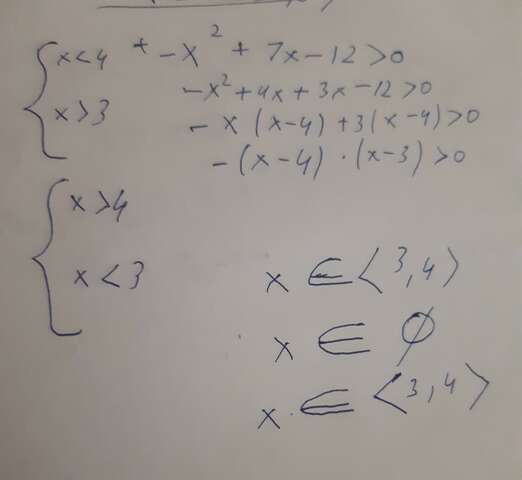 x<4 + -x² + 7x-12>0
x>3 -x²+4x+3x-12>0
-x(x-4)+3(x-4)>0
-(x-4)·(x-3)>0
x>4
x<3
x∈⟨3,4⟩
x∈∅
x∈⟨3,4⟩